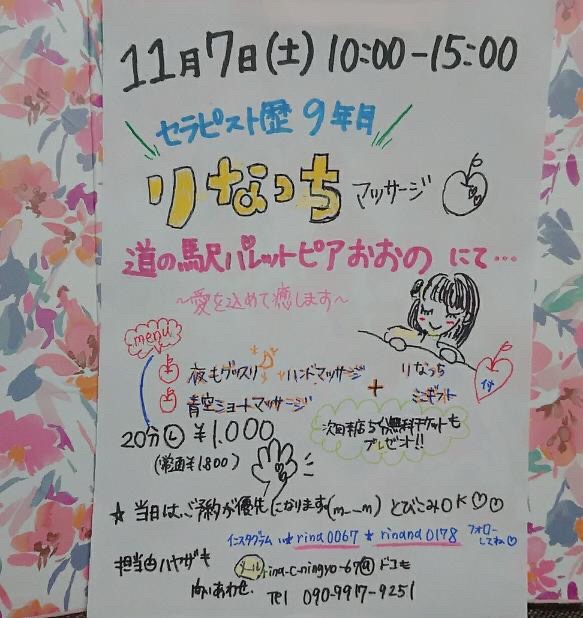 11月7日(土) 10:00-15:00
セラピスト歴9年目
りなっち マッサージ
道の駅パレットピアおおの にて…
～愛を込めて癒します～
menu
夜もグッスリ ハンドマッサージ
青空ショートマッサージ
+ りなっち ミニギフト 付
20分 ¥1,000
(常価¥1,800)
次回来店5分無料チケットも
プレゼント!!
★ 当日は、ご予約が優先になります(m__m) とびこみOK♡♡
インスタグラム ★rina0067 ★rinana0178 フォローしてね♡
担当 ハヤザキ
問いあわせ
メール rina-c-ningyo-67@ドコモ
Tel 090-9917-9251